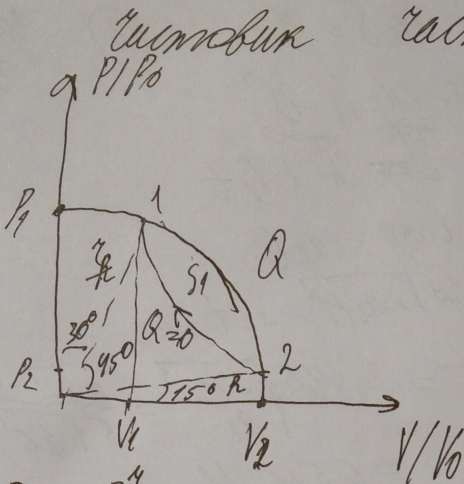 Чистовик
Час
P/P0
P1
1
Q
S1
R
30°
45°
Q=0
P2
2
15° R
V1
V2
V/V0